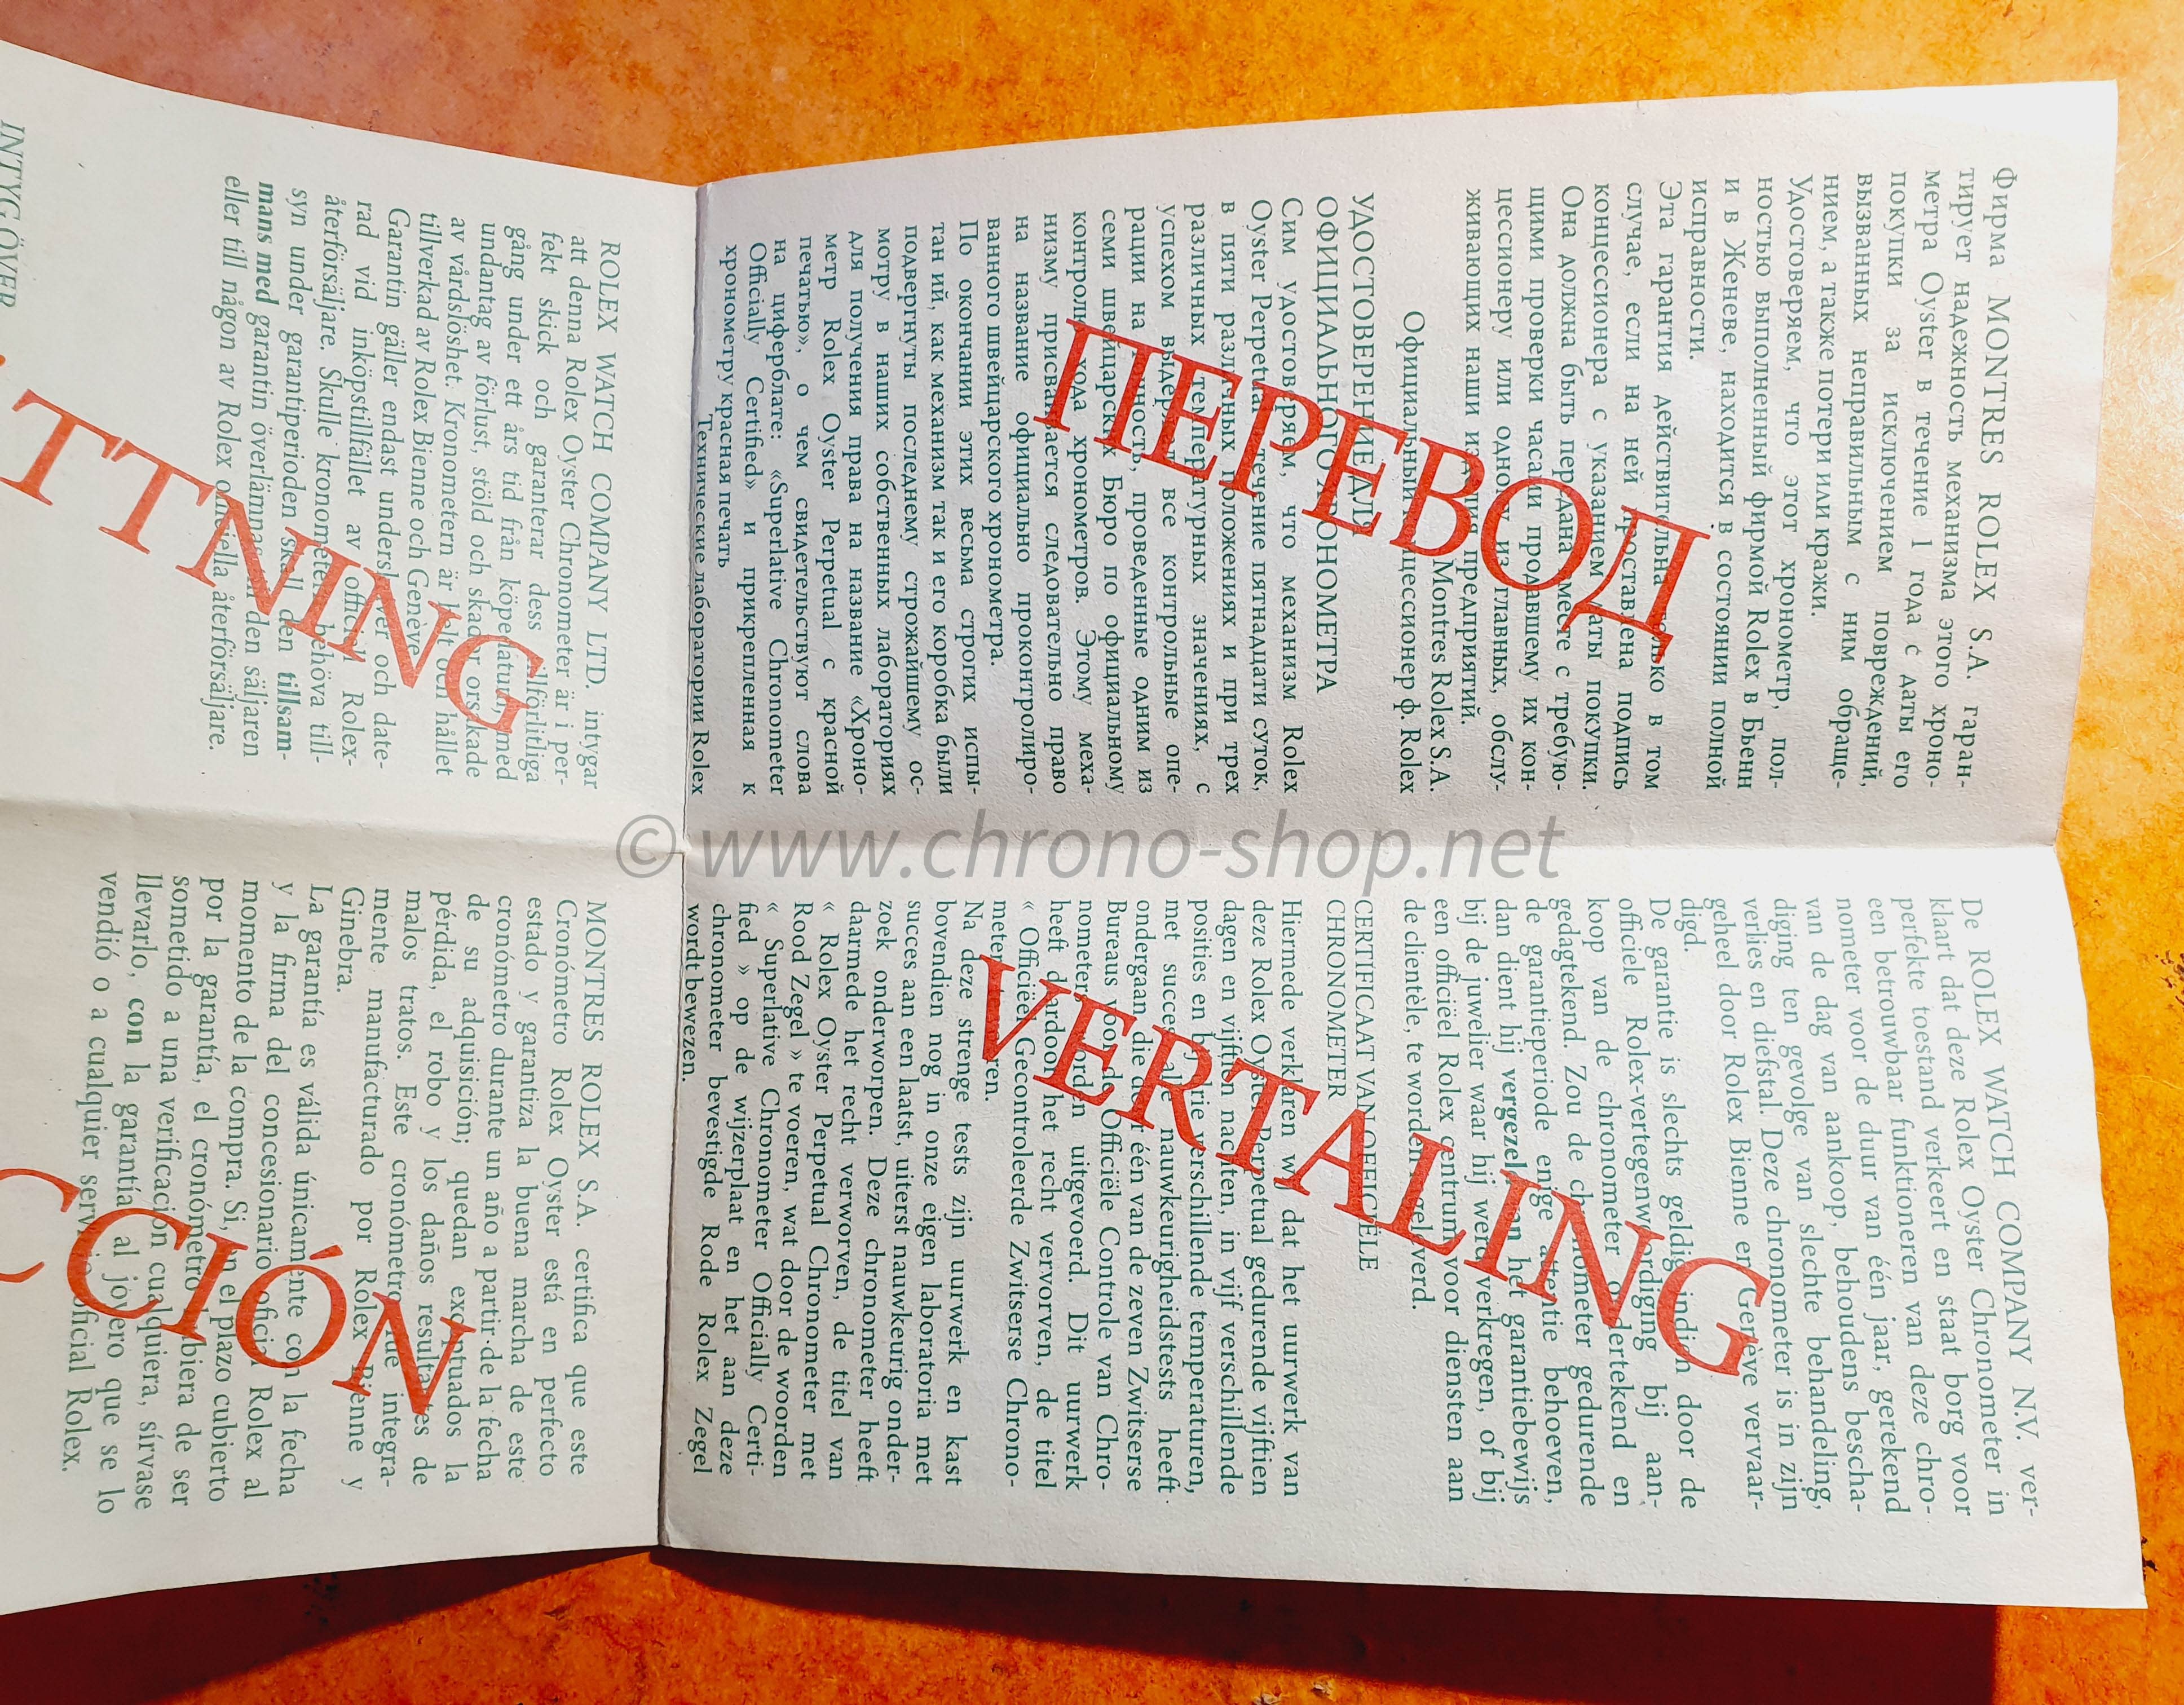 Фирма MONTRES ROLEX S.A. гаран-
тирует надежность механизма этого хроно-
метра Oyster в течение 1 года с даты его
покупки за исключением повреждений,
вызванных неправильным с ним обраще-
нием, а также потери или кражи.
Удостоверяем, что этот хронометр, пол-
ностью выполненный фирмой Rolex в Бьенн
и в Женеве, находится в состоянии полной
исправности.
Эта гарантия действительна только в том
случае, если на ней проставлена подпись
концессионера с указанием даты покупки.
Она должна быть передана вместе с требую-
щими проверки часами продавшему их кон-
цессионеру или одному из главных, обслу-
живающих наши изделия, предприятий.
Montres Rolex S.A.
Официальный концессионер ф. Rolex
УДОСТОВЕРЕНИЕ ДЛЯ
ОФИЦИАЛЬНОГО ХРОНОМЕТРА
Сим удостоверяем, что механизм Rolex
Oyster Perpetual в течение пятнадцати суток,
в пяти различных положениях и при трех
различных температурных значениях, с
успехом выдержал все контрольные опе-
рации на точность, проведенные одним из
семи швейцарских Бюро по официальному
контролю хода хронометров. Этому меха-
низму присваивается следовательно право
на название официально проконтролиро-
ванного швейцарского хронометра.
По окончании этих весьма строгих испы-
тан ий, как механизм так и его коробка были
подвергнуты последнему строжайшему ос-
мотру в наших собственных лабораториях
для получения права на название «Хроно-
метр Rolex Oyster Perpetual с красной
печатью», о чем свидетельствуют слова
на циферблате: «Superlative Chronometer
Officially Certified» и прикрепленная к
хронометру красная печать
Технические лаборатории Rolex
ПЕРЕВОД
De ROLEX WATCH COMPANY N.V. ver-
klaart dat deze Rolex Oyster Chronometer in
perfekte toestand verkeert en staat borg voor
een betrouwbaar funktioneren van deze chro-
nometer voor de duur van één jaar, gerekend
van de dag van aankoop, behoudens bescha-
diging ten gevolge van slechte behandeling,
verlies en diefstal. Deze chronometer is in zijn
geheel door Rolex Bienne en Genève vervaar-
digd.
De garantie is slechts geldig indien door de
officiele Rolex-vertegenwoordiging bij aan-
koop van de chronometer ondertekend en
gedagtekend. Zou de chronometer gedurende
de garantieperiode enige attentie behoeven,
dan dient hij vergezeld van het garantiebewijs
bij de juwelier waar hij werd verkregen, of bij
een officiëel Rolex centrum voor diensten aan
de clientèle, te worden ingeleverd.
CERTIFICAAT VAN OFFICIËLE
CHRONOMETER
Hiermede verklaren wij dat het uurwerk van
deze Rolex Oyster Perpetual gedurende vijftien
dagen en vijftien nachten, in vijf verschillende
posities en bij drie verschillende temperaturen,
met succes alle nauwkeurigheidstests heeft
ondergaan die door één van de zeven Zwitserse
Bureaus voor de Officiële Controle van Chro-
nometers worden uitgevoerd. Dit uurwerk
heeft daardoor het recht vervorven, de titel
« Officiëel Gecontroleerde Zwitserse Chrono-
meter » te voeren.
Na deze strenge tests zijn uurwerk en kast
bovendien nog in onze eigen laboratoria met
succes aan een laatst, uiterst nauwkeurig onder-
zoek onderworpen. Deze chronometer heeft
daarmede het recht verworven, de titel van
« Rolex Oyster Perpetual Chronometer met
Rood Zegel » te voeren, wat door de woorden
« Superlative Chronometer Officially Certi-
fied » op de wijzerplaat en het aan deze
chronometer bevestigde Rode Rolex Zegel
wordt bewezen.
VERTALING
ROLEX WATCH COMPANY LTD. intygar
att denna Rolex Oyster Chronometer är i per-
fekt skick och garanterar dess tillförlitliga
gång under ett års tid från köpedatum, med
undantag av förlust, stöld och skador orsakade
av vårdslöshet. Kronometern är helt och hållet
tillverkad av Rolex Bienne och Genève.
Garantin gäller endast underskriven och date-
rad vid inköpstillfället av officiell Rolex-
återförsäljare. Skulle kronometern behöva till-
syn under garantiperioden skall den tillsam-
mans med garantin överlämnas till den säljaren
eller till någon av Rolex officiella återförsäljare.
INTYG ÖVER
TTNING
MONTRES ROLEX S.A. certifica que este
Cronómetro Rolex Oyster está en perfecto
estado y garantiza la buena marcha de este
cronómetro durante un año a partir de la fecha
de su adquisición; quedan exceptuados la
pérdida, el robo y los daños resultantes de
malos tratos. Este cronómetro fue integra-
mente manufacturado por Rolex Bienne y
Ginebra.
La garantía es válida únicamente con la fecha
y la firma del concesionario oficial Rolex al
momento de la compra. Si, en el plazo cubierto
por la garantía, el cronómetro hubiera de ser
sometido a una verificación cualquiera, sírvase
llevarlo, con la garantía, al joyero que se lo
vendió o a cualquier servicio oficial Rolex.
CCIÓN
©www.chrono-shop.net